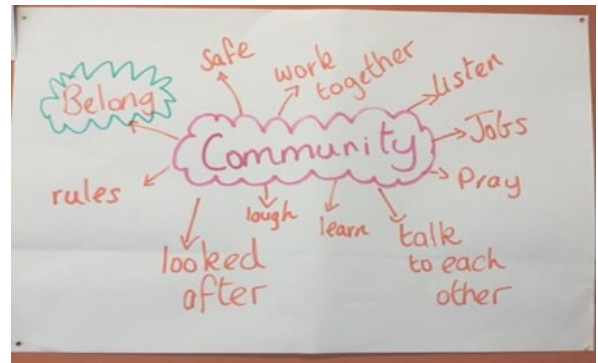 safe
work
together
listen
Belong
Community
Jobs
Pray
rules
laugh
learn
talk
to each
other
looked
after